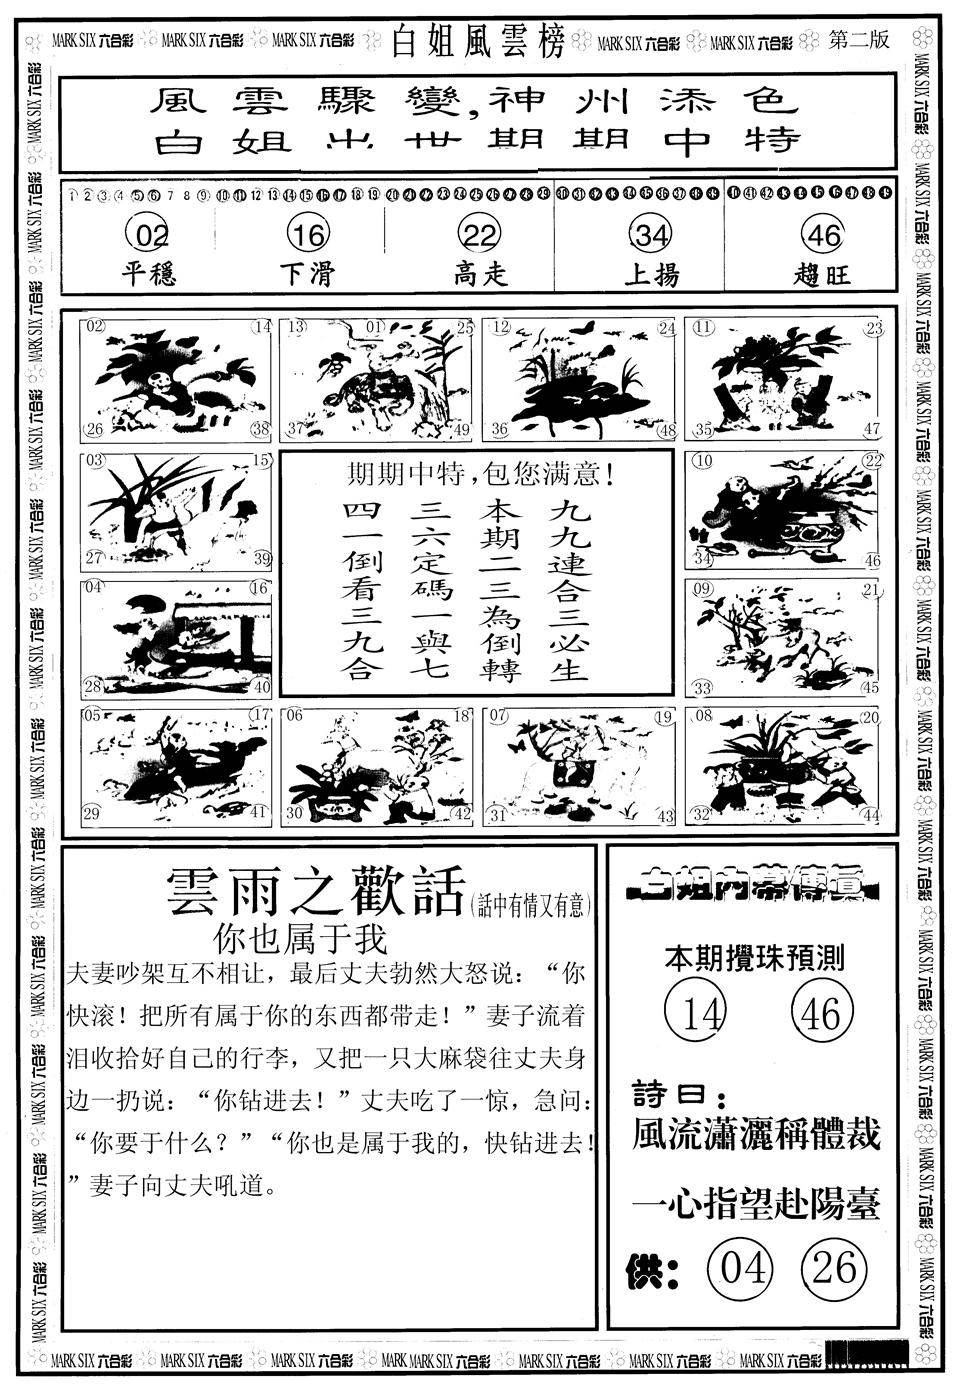 MARK SIX 六合彩 MARK SIX 六合彩 MARK SIX 六合彩 白姐風雲榜 MARK SIX 六合彩 MARK SIX 六合彩 第二版
風雲驟變,神州添色
白姐出世期期中特
1 2 3 4 5 6 7 8 9 10 11 12 13 14 15 16 17 18 19 20 21 22 23 24 25 26 27 28 29 30 31 32 33 34 35 36 37 38 39 40 41 42 43 44 45 46 47 48 49
02 16 22 34 46
平穩 下滑 高走 上揚 趨旺
02 14 13 01 25 12 24 11 23
26 38 37 49 36 48 35 47
03 15
27 39
04 16
28 40
期期中特,包您满意!
九九連合三必生
本期二三為倒轉
三六定碼一與七
四一倒看三九合
10 22
34 46
09 21
33 45
05 17 06 18 07 19 08 20
29 41 30 42 31 43 32 44
雲雨之歡話(話中有情又有意)
你也属于我
夫妻吵架互不相让，最后丈夫勃然大怒说：“你
快滚！把所有属于你的东西都带走！”妻子流着
泪收拾好自己的行李，又把一只大麻袋往丈夫身
边一扔说：“你钻进去！”丈夫吃了一惊，急问：
“你要于什么？”“你也是属于我的，快钻进去！
”妻子向丈夫吼道。
白姐内幕傳真
本期攪珠預測
14 46
詩曰：
風流瀟灑稱體裁
一心指望赴陽臺
供: 04 26
MARK SIX 六合彩 MARK SIX 六合彩 MARK SIX 六合彩 MARK MARK SIX 六合彩 MARK SIX 六合彩 MARK SIX 六合彩 MARK SIX 六合彩